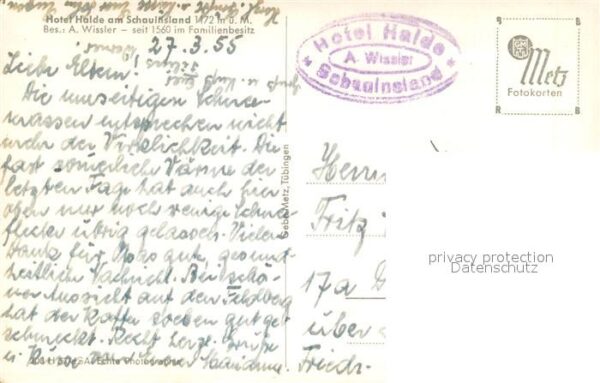 Hotel Halde am Schauinsland 1172 m ü. M.
Bes.: A. Wissler – seit 1560 im Familienbesitz
27.3.55
Liebe Eltern!
Die umseitigen Schnee-
massen entsprechen nicht
mehr der Wirklichkeit. Die
fast sommerliche Wärme der
letzten Tage hat auch hier
oben nur noch wenige Schnee-
flecken übrig gelassen. Vielen
Dank für Papas gute, gesund-
heitliche Nachricht. Bei schö-
ner Aussicht auf den Feldberg
hat der Kaffe soeben gut ge-
schmeckt. Recht herzl. Grüße
u. Küsse von Eurer
Echte Photographie
Gebr. Metz, Tübingen
Hotel Halde
A. Wissler
Schauinsland
Metz
Fotokarten
R B
Herrn
Fritz
17a
über
Friedr.
privacy protection
Datenschutz